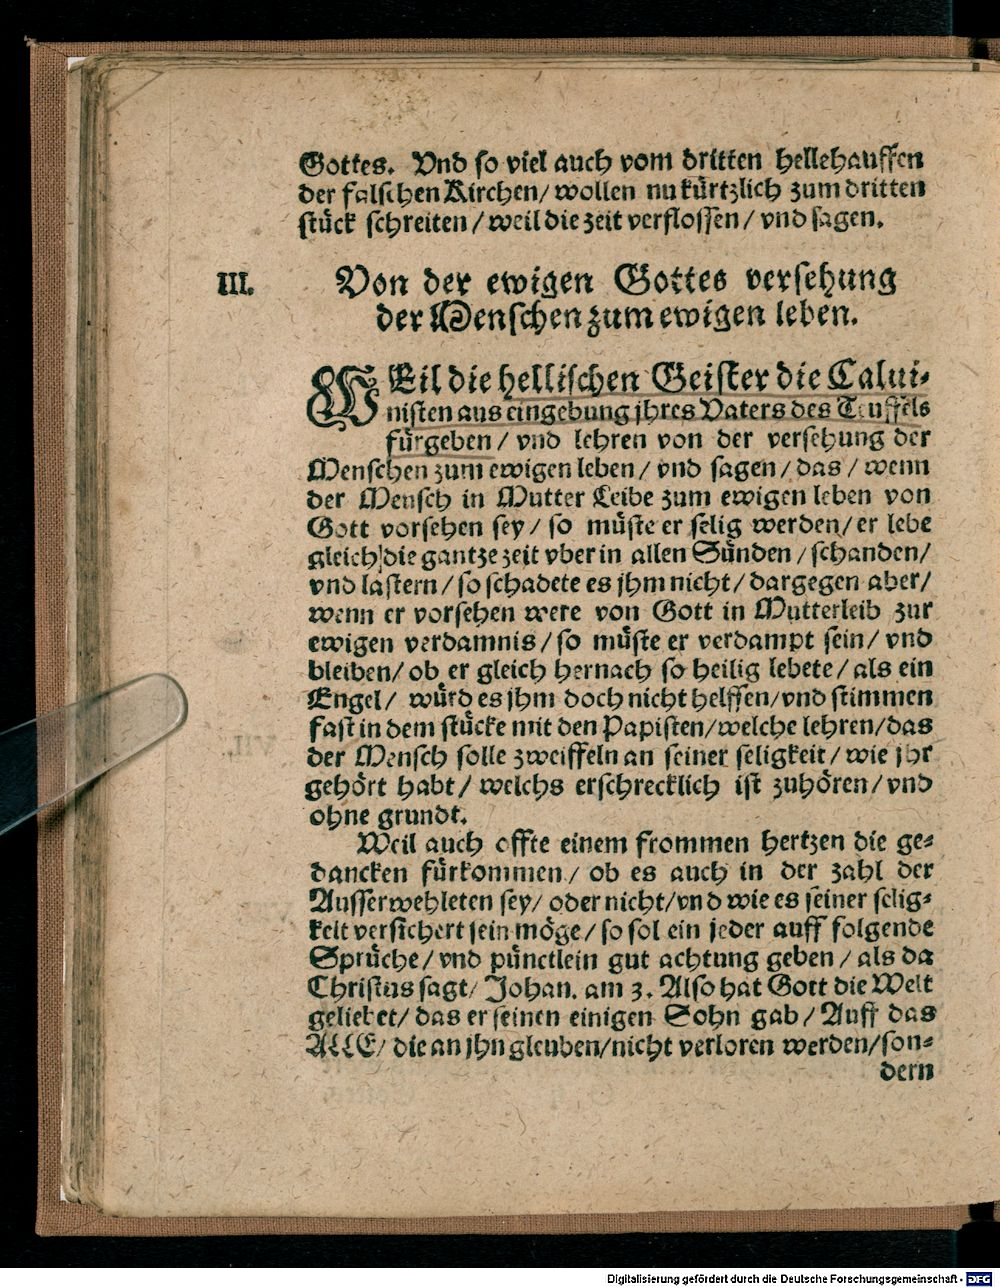 Gottes. Vnd so viel auch vom dritten hellehauffen
der falschen Kirchen/ wollen nu kürtzlich zum dritten
stück schreiten/ weil die zeit verflossen/ vnd sagen.
III. Von der ewigen Gottes versehung
der Menschen zum ewigen leben.
WEil die hellischen Geister die Calui-
nisten aus eingebung jhres Vaters des Teuffels
fürgeben/ vnd lehren von der versehung der
Menschen zum ewigen leben/ vnd sagen/ das/ wenn
der Mensch in Mutter Leibe zum ewigen leben von
Gott vorsehen sey/ so müste er selig werden/ er lebe
gleich die gantze zeit vber in allen Sünden/ schanden/
vnd lastern/ so schadete es jhm nicht/ dargegen aber/
wenn er vorsehen were von Gott in Mutterleib zur
ewigen verdamnis/ so müste er verdampt sein/ vnd
bleiben/ ob er gleich hernach so heilig lebete/ als ein
Engel/ würd es jhm doch nicht helffen/ vnd stimmen
fast in dem stücke mit den Papisten/ welche lehren/ das
der Mensch solle zweiffeln an seiner seligkeit/ wie jhr
gehört habt/ welchs erschrecklich ist zuhören/ vnd
ohne grundt.
Weil auch offte einem frommen hertzen die ge-
dancken fürkommen/ ob es auch in der zahl der
Ausserwehleten sey/ oder nicht/ vnd wie es seiner selig-
keit versichert sein möge/ so sol ein jeder auff folgende
Sprüche/ vnd pünctlein gut achtung geben/ als da
Christus sagt/ Johan. am 3. Also hat Gott die Welt
geliebet/ das er seinen einigen Sohn gab/ Auff das
ALLE/ die an jhn gleuben/ nicht verloren werden/ son-
dern
Digitalisierung gefördert durch die Deutsche Forschungsgemeinschaft - DFG